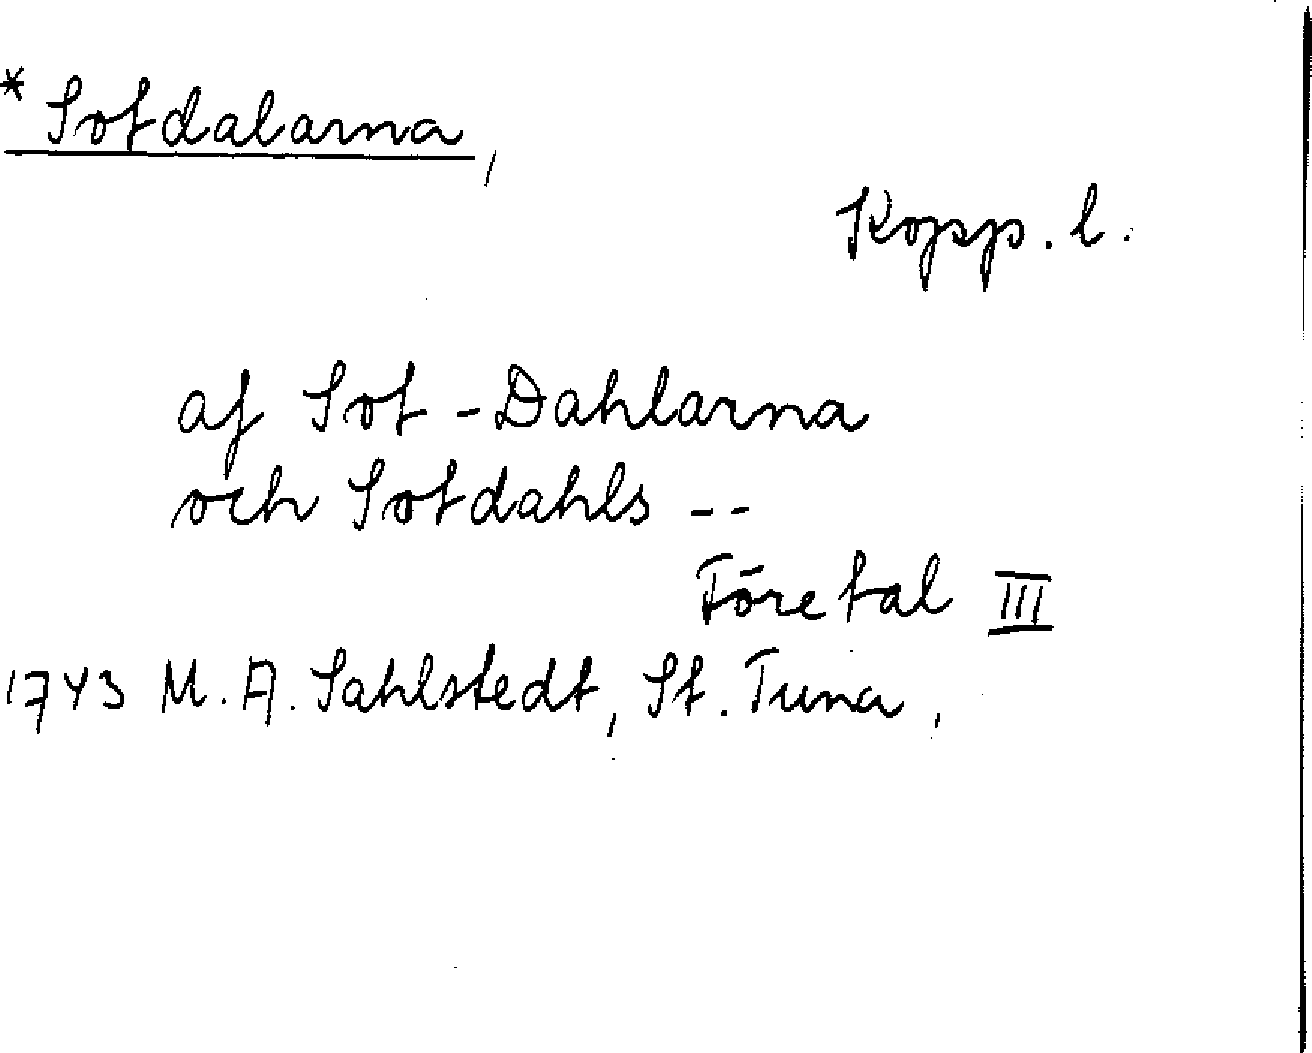 * Sotdalarna,
Kopp. l.
af Sot-Dahlarna
och Sotdahls --
Företal III
1743 M. A. Sahlstedt, St. Tuna,